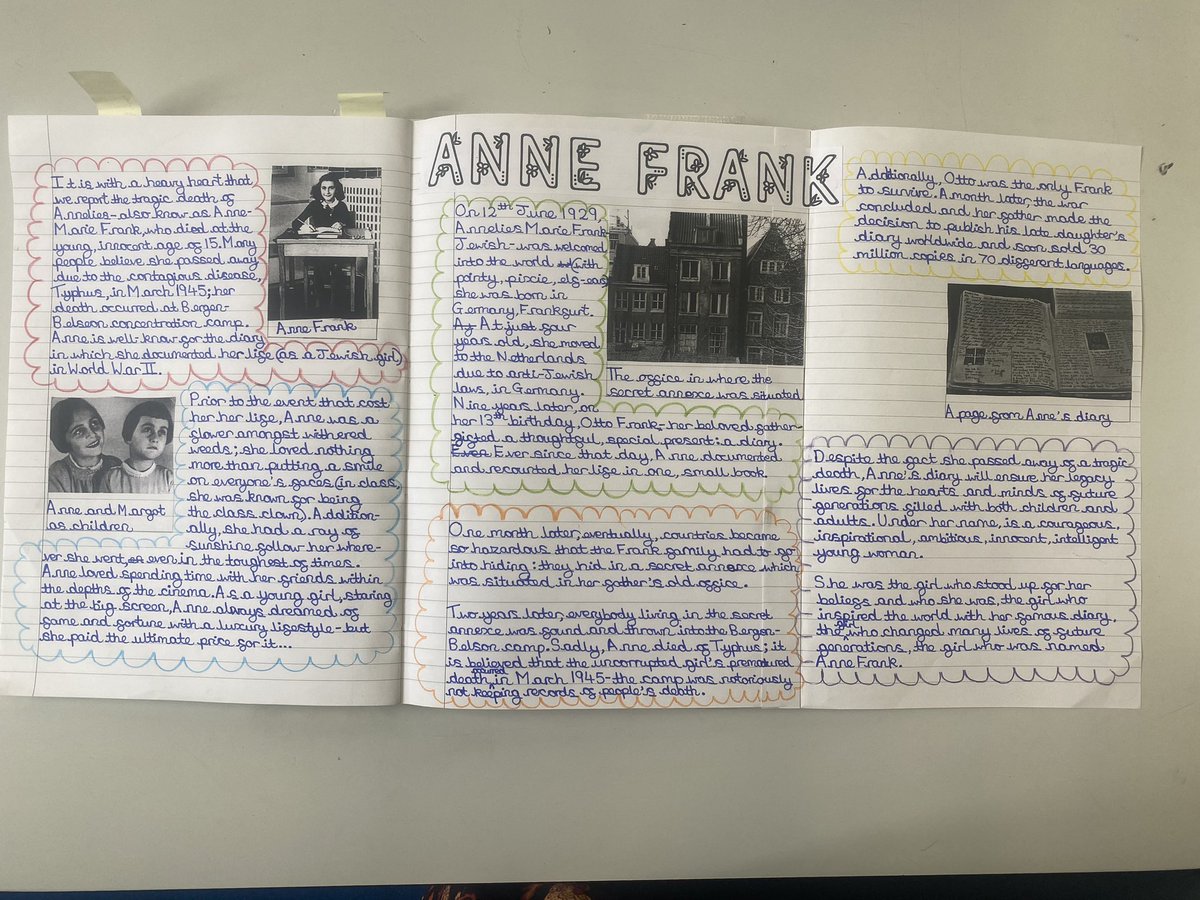 ANNE FRANK
It is with a heavy heart that
we report the tragic death of
Annelies-also know as Anne-
Marie Frank, who died at the
young, innocent age of 15. Many
people believe she passed away
due to the contagious disease,
Typhus, in March 1945; her
death occurred at Bergen-
Belseon concentration camp.
Anne is well-know for the diary
in which she documented her life (as a Jewish girl)
in World War II.
Anne Frank
Anne and Margot
as children
Prior to the event that cost
her her life, Anne was a
flower amongst withered
weeds; she loved nothing
more than putting a smile
on everyone's faces (in class,
she was known for being
the class clown). Addition-
ally, she had a ray of
sunshine follow her where-
ver she went, even in the toughest of times.
Anne loved spending time with her friends within
the depths of the cinema. As a young girl, staring
at the big screen, Anne always dreamed of
fame and fortune with a luxury lifestyle - but
she paid the ultimate price for it...
On 12th June 1929,
Annelies Marie Frank
Jewish- was welcomed
into the world with
pointy, pixie, elf-ears
she was born in
Germany, Frankfurt.
At At just four
years old, she moved
to the Netherlands
due to anti-Jewish
laws, in Germany.
Nine years later, on
her 13th birthday, Otto Frank- her beloved father-
gifted a thoughtful, special present: a diary.
Even Ever since that day, Anne documented
and recounted her life in one, small book.
The office in where the
secret annexe was situated
One month later, eventually, countries became
so hazardous that the Frank family had to go
into hiding: they hid in a secret annexe which
was situated, in her father's old office.
Two years later, everybody living in the secret
annexe was found and thrown into the Bergen-
Belson camp. Sadly, Anne died of Typhus; it
is believed that the uncorrupted girl's premature
death occurred in March 1945-the camp was notoriously
not keeping records of people's death.
Additionally, Otto was the only Frank
to survive. A month later, the war
concluded and her father made the
decision to publish his late daughter's
diary worldwide and soon sold 30
million copies in 70 different languages.
A page from Anne's diary
Despite the fact she passed away of a tragic
death, Anne's diary will ensure her legacy
lives for the hearts and minds of future
generations filled with both children and
adults. Under her name, is a courageous,
inspirational, ambitious, innocent, intelligent
young woman.
She was the girl who stood up for her
beliefs and who she was, the girl who
inspired the world with her famous diary,
the girl who changed many lives of future
generations, the girl who was named
Anne Frank.